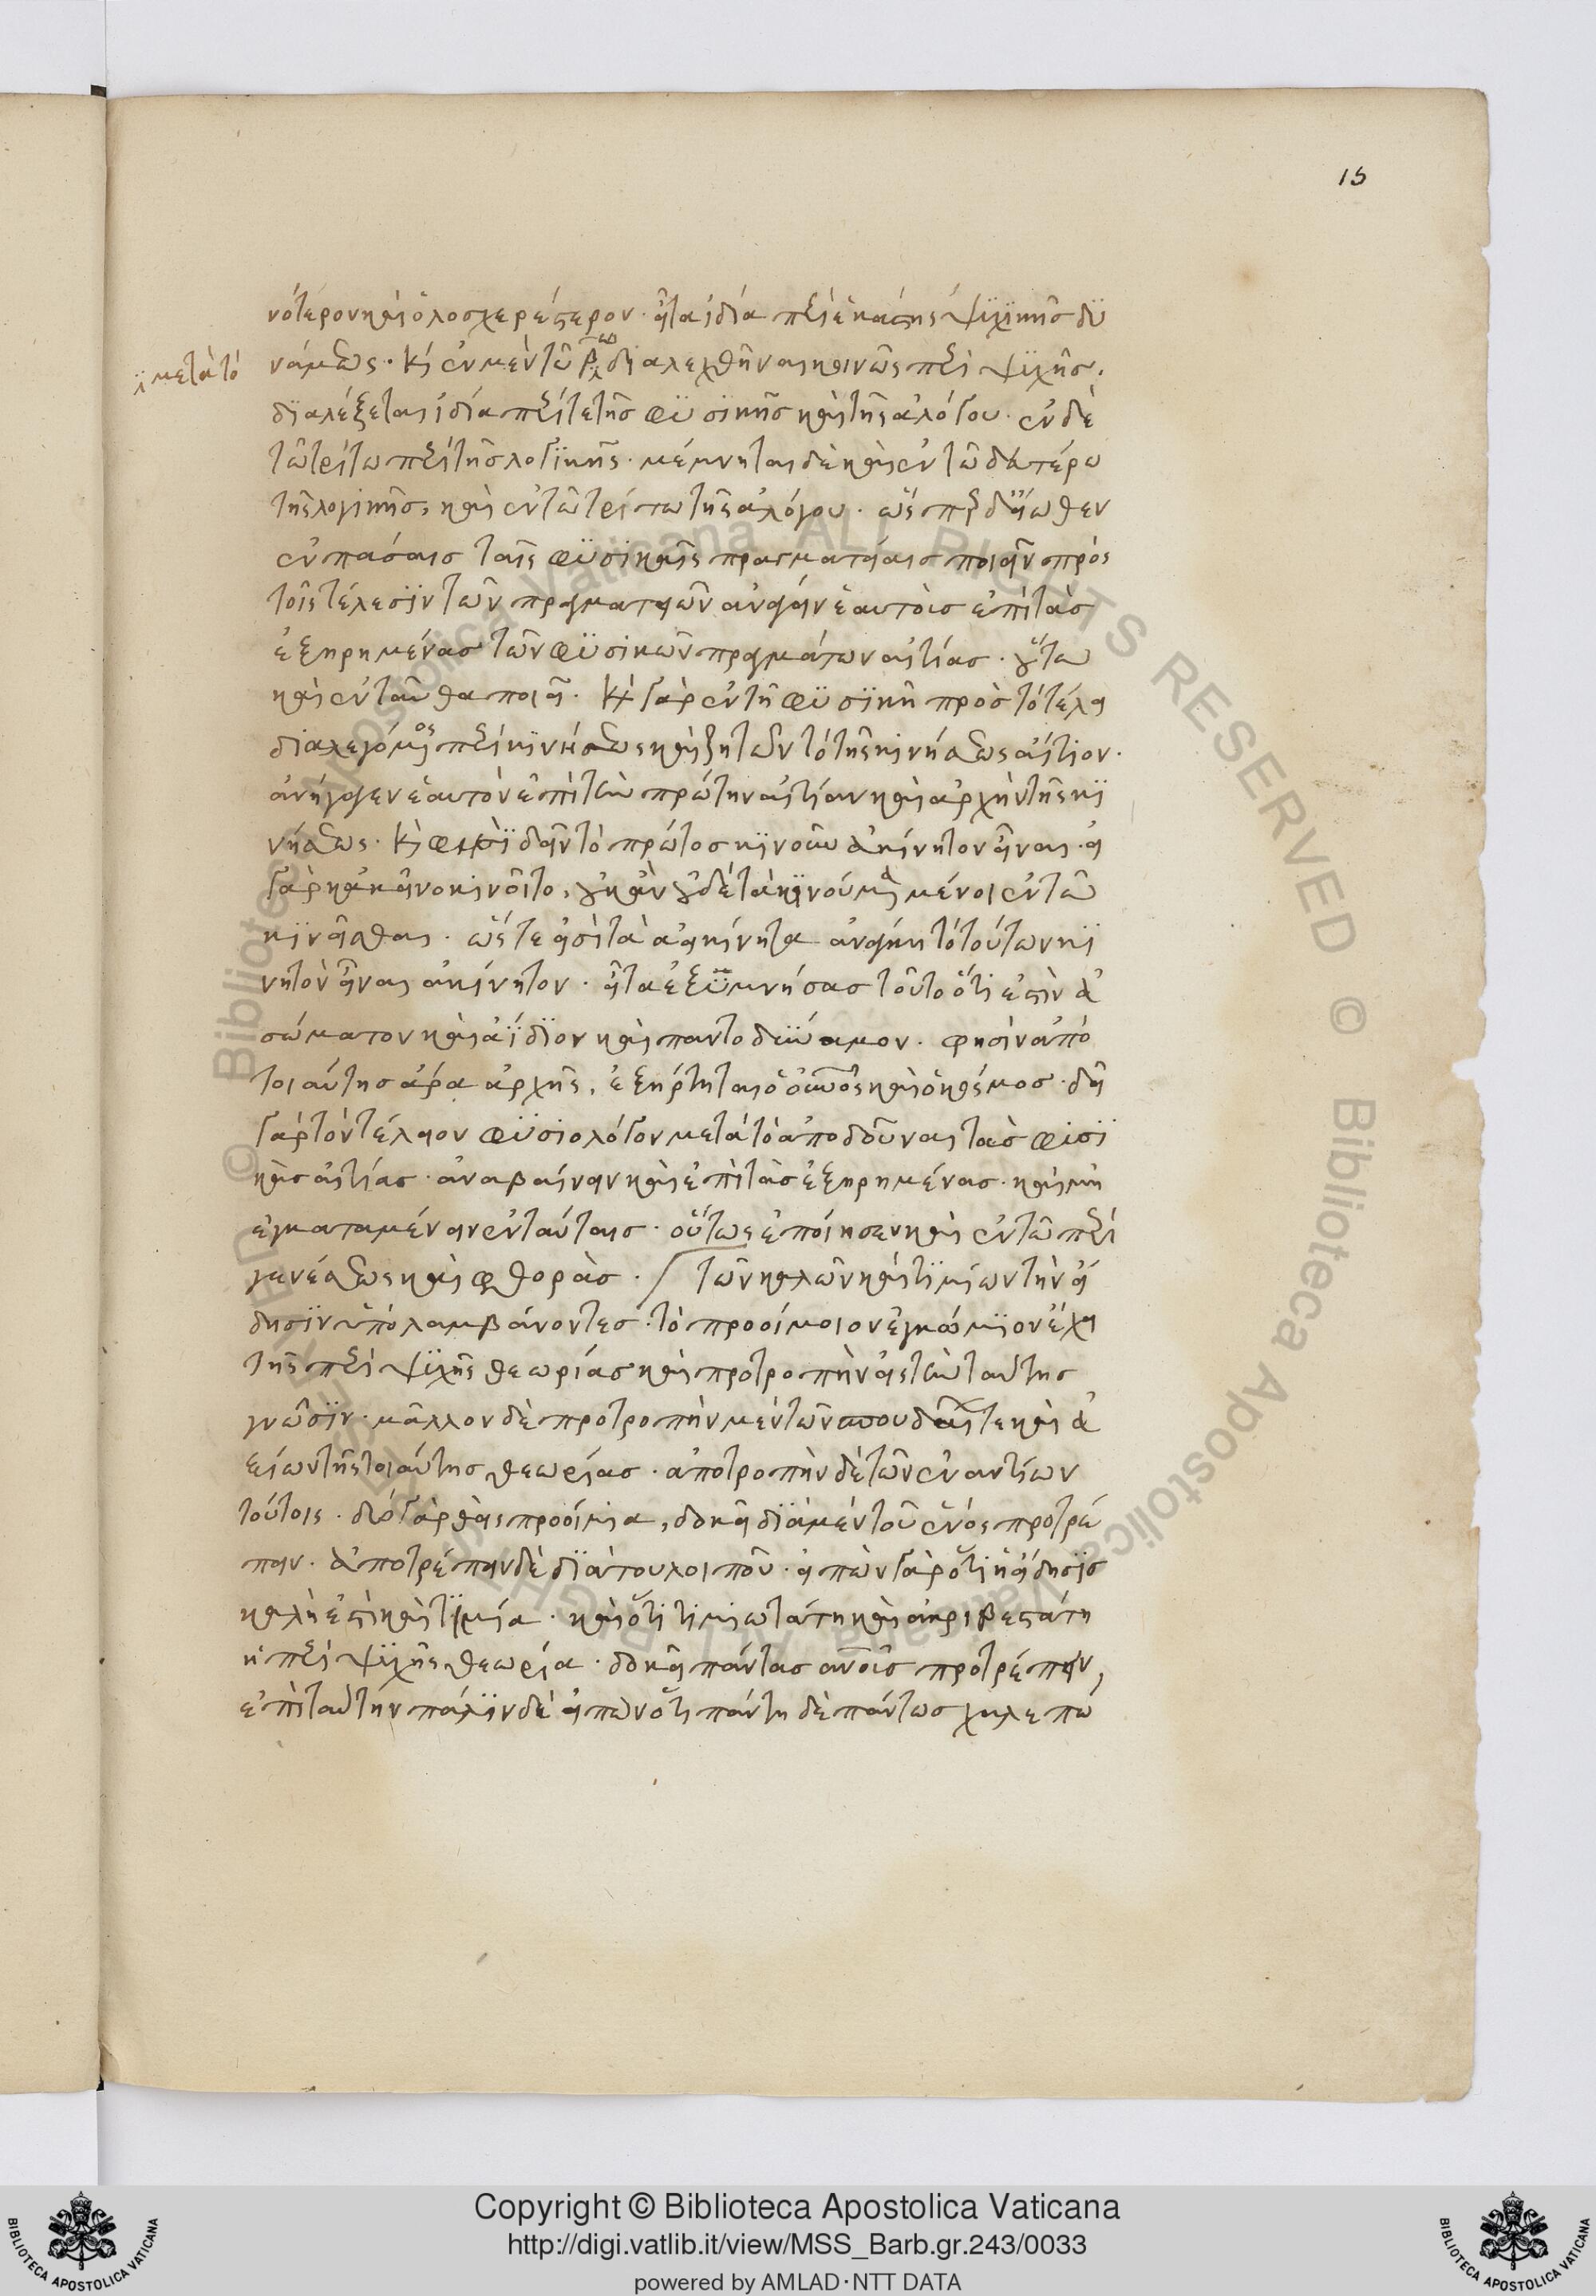 15
νότερον καὶ ὁλοσχερέστερον· εἶτα ἰδία περὶ ἑκάστης ψυχικῆς δυ
μετὰ τὸ
νάμεως· καὶ ἐν μὲν τῶ βω διαλεχθῆναι κοινῶς περὶ ψυχῆς,
διαλέξεται ἰδία περί τε τῆς φυσικῆς καὶ τῆς ἀλόγου· ἐν δὲ
τῶ τρίτω περὶ τῆς λογικῆς· μέμνηται δὲ καὶ ἐν τῶ δευτέρω
τῆς λογικῆς, καὶ ἐν τῶ τρίτω τῆς ἀλόγου· ὥσπερ δὲ εἴωθεν
ἐν πάσαις ταῖς φυσικαῖς πραγματείαις ποιεῖν πρὸς
τοῖς τέλεσιν τῶν πραγματειῶν ἀνάγειν ἑαυτὸις ἐπὶ τὰς
ἐξηρημένας τῶν φυσικῶν πραγμάτων αἰτίας· οὕτω
καὶ ἐνταῦθα ποιεῖ· καὶ γὰρ ἐν τῆ φυσικῆ πρὸς τὸ τέλει
διαλεγόμενος περὶ κινήσεως καὶ ζητῶν τὸ τῆς κινήσεως αἴτιον·
ἀνήγαγεν ἑαυτὸν ἐπὶ τὴν πρώτην αἰτίαν καὶ ἀρχὴν τῆς κι
νήσεως· καὶ φησὶ δεῖν τὸ πρώτος κινοῦν ἀκίνητον εἶναι· εἰ
γὰρ κἀκεῖνο κινοῖτο, οὐκ ἂν οὐδὲ τὰ κινούμενα μένοι ἐν τῶ
κινεῖσθαι· ὥστε εἰσὶ τὰ ἀεικίνητα ἀνάγκη τὸ τούτων κι
νητὸν εἶναι ἀκίνητον· εἶτα ἐξυμνήσας τοῦτο ὅτι ἐστὶν ἀ
σώματον καὶ ἀΐδιον καὶ παντοδύναμον· φησὶν ἀπὸ
τοιαύτης ἄρα ἀρχῆς, ἐξήρτηται ὁ οὐνος καὶ ὁ κόσμος· δεῖ
γὰρ τὸν τέλειον φυσιολόγον μετὰ τὸ ἀποδοῦναι τὰς φισι
κὰς αἰτίας· ἀναβαίνειν καὶ ἐπὶ τὰς ἐξηρημένας· καὶ μὴ
ἐγκαταμένειν ἐν ταύταις· οὕτως ἐποίησεν καὶ ἐν τῶ περὶ
γενέσεως καὶ φθορὰς· / τῶν καλῶν καὶ τιμίων τὴν εἴ
δησιν ὑπολαμβάνοντες· τὸ προοίμιον ἐγκώμιον ἔχει
τῆς περὶ ψυχῆς θεωρίας καὶ προτροπὴν εἰς τὴν ταύτης
γνῶσιν· μᾶλλον δὲ προτροπὴν μὲν τῶν σπουδαίων τε καὶ ἀ
ξίων τῆς τοιαύτης θεωρίας· ἀποτροπὴν δὲ τῶν ἐναντίων
τούτοις· δύο γὰρ θεὶς προοίμια, δοκεῖ διὰ μὲν τοῦ ἑνὸς προτρέ
πειν· ἀποτρέπειν δὲ διὰ του λοιποῦ· εἰπὼν γὰρ ὅτι ἡ εἴδησις
καλὴ ἐστὶ καὶ τιμία· καὶ ὅτι τιμιωτάτη καὶ ἀκριβεστάτη
ἡ περὶ ψυχῆς θεωρία· δοκεῖ πάντας ἀνοις προτρέπειν,
ἐπὶ ταύτην πάλιν δὲ εἰπων ὅτι πάντη δὲ πάντως χαλεπω
Copyright © Biblioteca Apostolica Vaticana
http://digi.vatlib.it/view/MSS_Barb.gr.243/0033
powered by AMLAD·NTT DATA
BIBLIOTECA APOSTOLICA VATICANA
BIBLIOTECA APOSTOLICA VATICANA